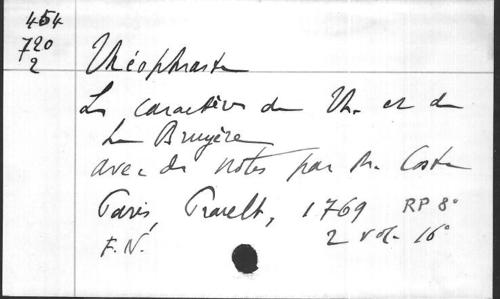 454
720
2
Théophraste
Les caractères de Th. et de
La Bruyère
avec des notes par M. Coste
Paris, Prault, 1769 RP 8°
F. N. 2 vol. 16°